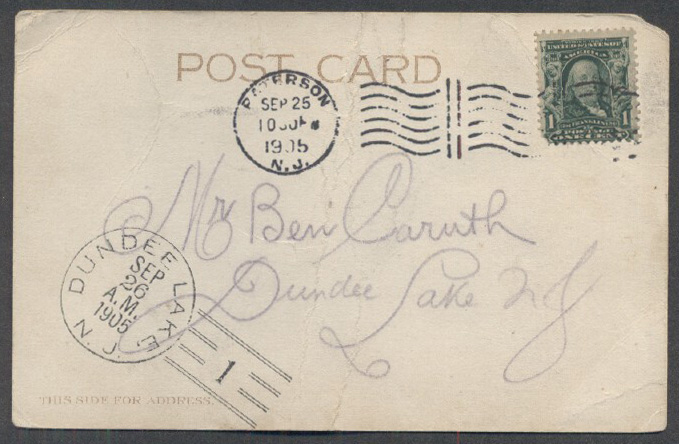 POST CARD
PATERSON
SEP 25
1905
N.J.
UNITED STATES OF AMERICA
1 1
Mr Ben Caruth
Dundee Lake N J
DUNDEE LAKE
SEP
26
A.M.
1905
N.J.
1
THIS SIDE FOR ADDRESS.